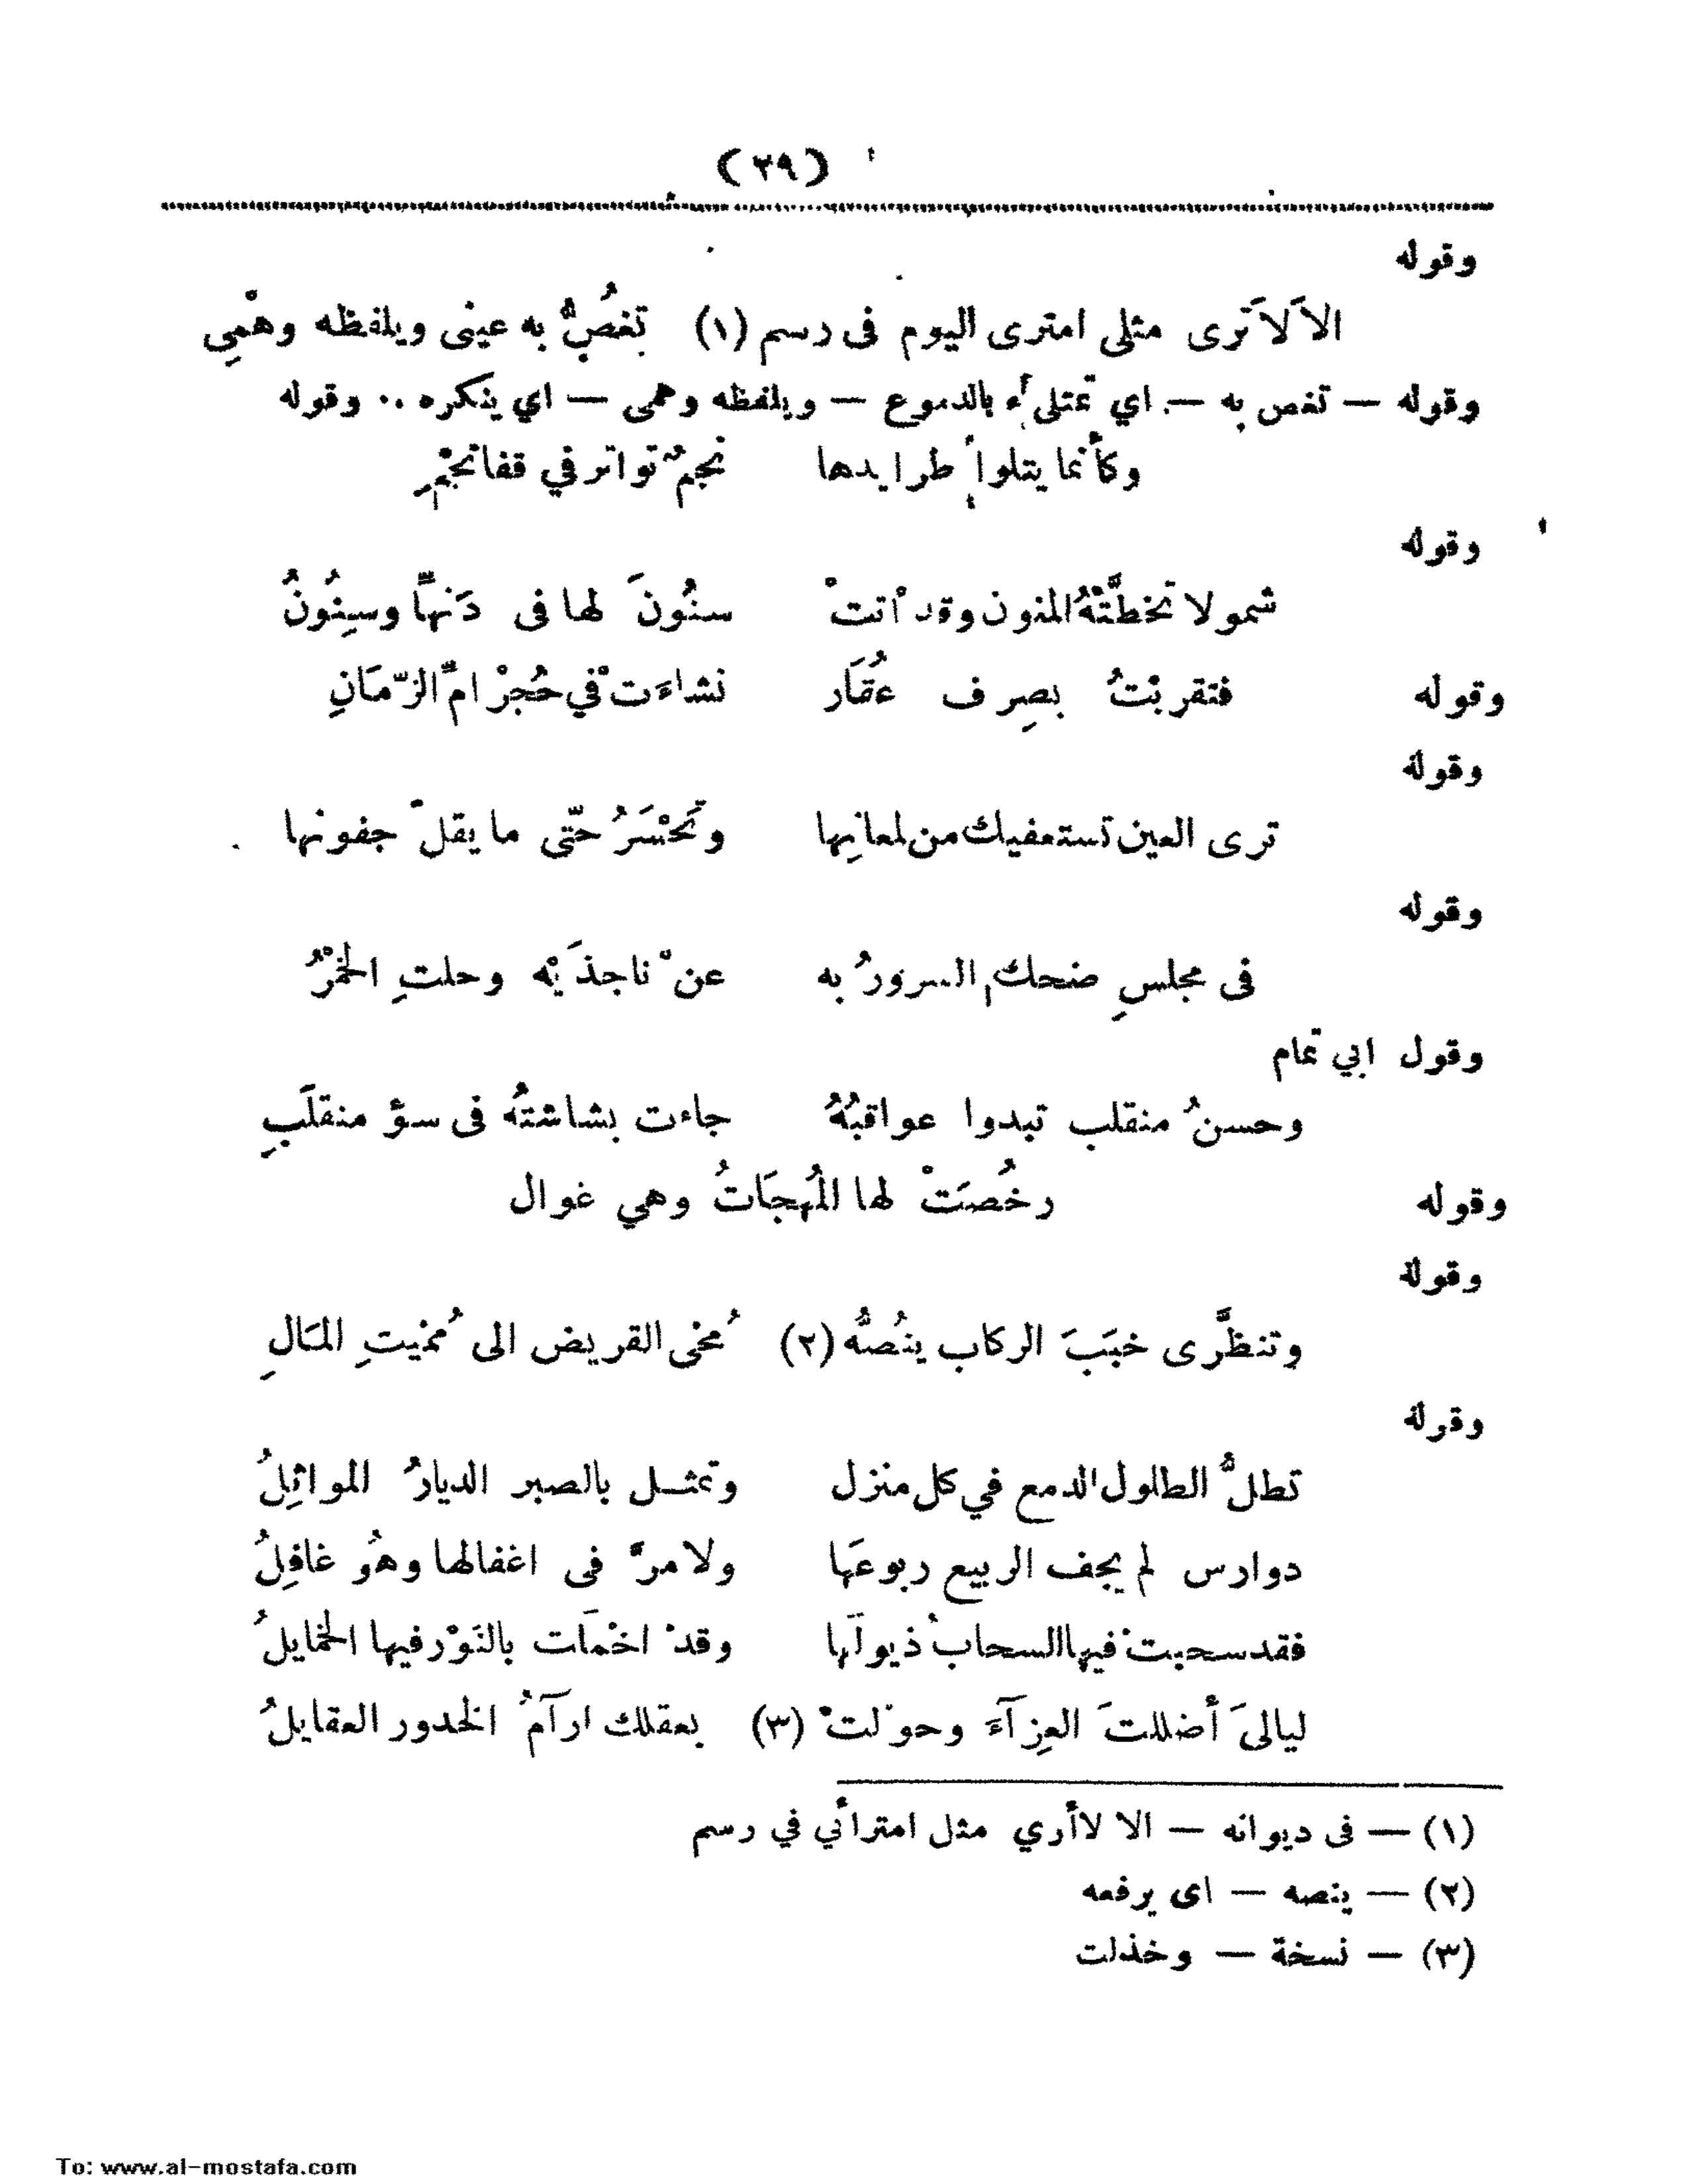 (٢٩)
وقوله
الاَ لاَ ترى مثلى امترى اليوم فى رسم (١) تغصُّ به عينى ويلفظه وهْمِي
وقوله – تغص به – اي تمتلىء بالدموع – ويلفظه وهمى – اي ينكره .. وقوله
وكأنما يتلوا طرايدها نجمٌ تواتر في قفا نجْمِ
وقوله
شمولا تخطَّتْهُ المنون وقد اتتْ سنُونَ لها فى دَنهاِّ وسِنُونُ
وقوله فتقربْتُ بصِرف عُقَار نشاءَتْ في حُجرْ امِّ الزّمَانِ
وقوله
ترى العين تستعفيك من لمعانِها وتَحْسَرُ حتّى ما يقلّ جفونها
وقوله
فى مجلسِ ضحك السرورُ به عنْ ناجذَيْه وحلتِ الخمْرُ
وقول ابي تمام
وحسنُ منقلب تبدوا عواقبُهُ جاءت بشاشتُه فى سوٴ منقلَبِ
وقوله رخُصَتْ لها المُهجَاتُ وهي غوال
وقوله
وتنظَّرى خبَبَ الركاب ينُصُّه (٢) مُحْى القريض الى مُميْتِ المَالِ
وقوله
تطلُّ الطلول الدمع في كل منزل وتمثل بالصبر الديارُ المواثِلُ
دوارس لم يجف الربيع ربوعَها ولا مرَّ فى اغفالها وهُو غافِلُ
فقد سحبتْ فيها السحابُ ذيولَها وقدْ اخْمَلت بالنَوْر فيها الخمايلُ
ليالىَ أضللتَ العِزآءَ وحوّلتْ (٣) بعقلك ارآمُ الخدور العقايلُ
(١) – فى ديوانه – الا لاأري مثل امترأني في رسم
(٢) – ينصه – اى يرفعه
(٣) – نسخة – وخذلت
To: www.al-mostafa.com